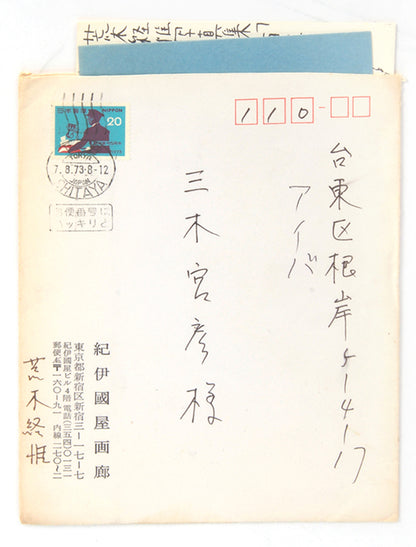 荒木経惟写真集
NIPPON
20
7.8.73.8-12
郵便番号は
ハッキリと
110
台東区根岸
アイバ
三木宮彦様
紀伊國屋画廊
東京都新宿区新宿三ー一七ー七
紀伊國屋ビル4階 電話(三五四)〇一三一
郵便〒一六〇ー九一 内線二七〇〜二
荒木経惟